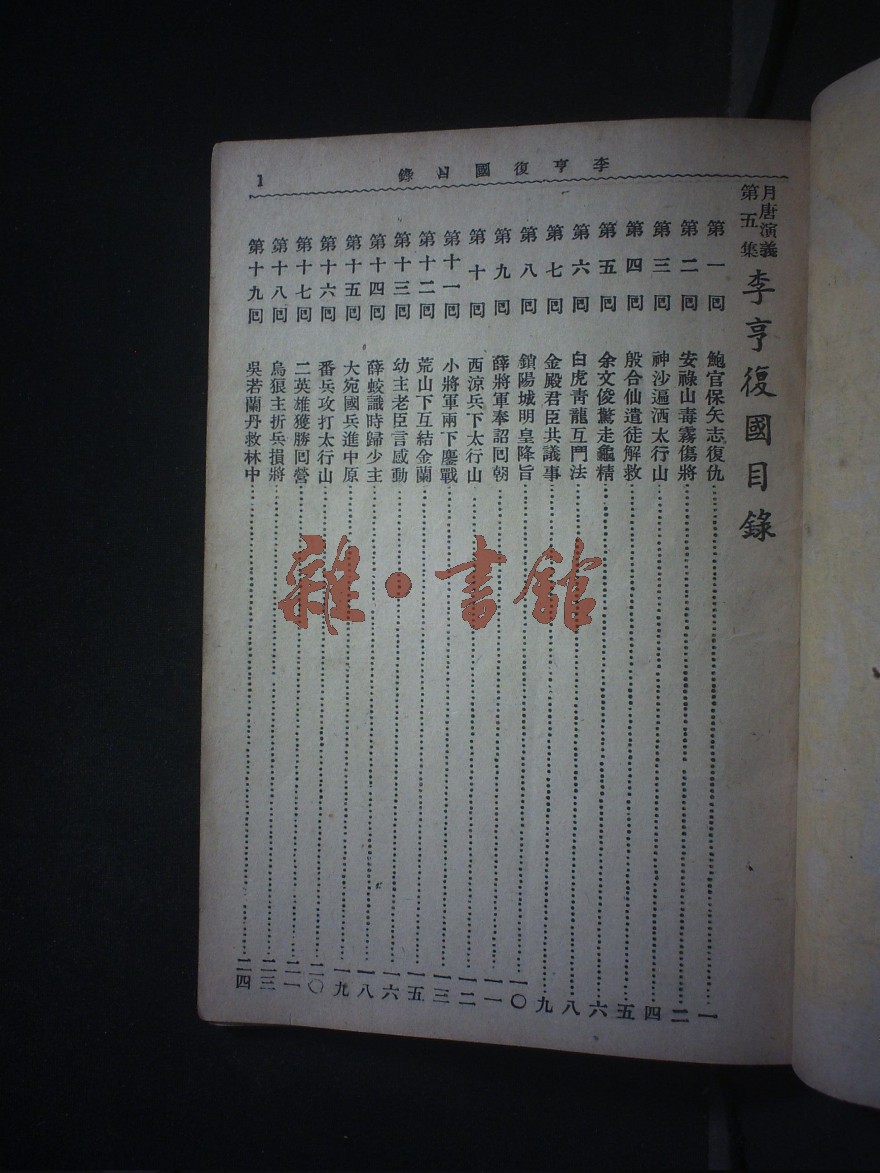 李亨復國目錄
1
月唐演義
第五集
李亨復國目錄
第一囘 鮑官保矢志復仇 一
第二囘 安祿山毒霧傷將 二
第三囘 神沙逼洒太行山 四
第四囘 殷合仙遣徒解救 五
第五囘 余文俊驚走龜精 六
第六囘 白虎靑龍互鬥法 八
第七囘 金殿君臣共議事 九
第八囘 鎖陽城明皇降旨 一〇
第九囘 薛將軍奉詔囘朝 一一
第十囘 西涼兵下太行山 一二
第十一囘 小將軍兩下鏖戰 一三
第十二囘 荒山下互結金蘭 一五
第十三囘 幼主老臣言感動 一六
第十四囘 薛蛟識時歸少主 一八
第十五囘 大宛國兵進中原 一九
第十六囘 番兵攻打太行山 二〇
第十七囘 二英雄獲勝囘營 二一
第十八囘 烏狼主折兵損將 二三
第十九囘 吳若蘭丹救林中 二四
雜·書館